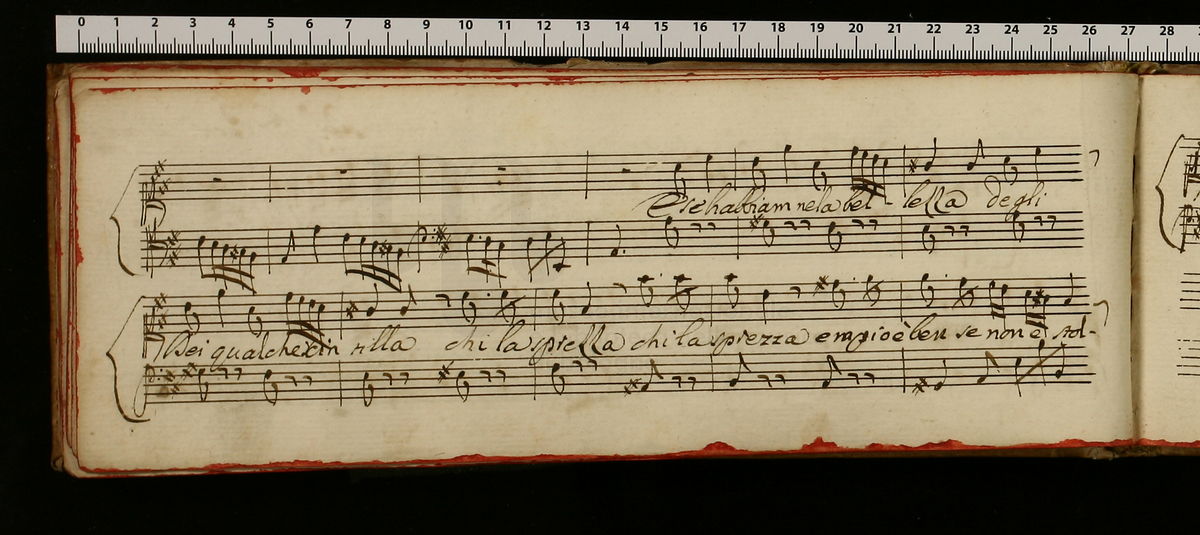 0 1 2 3 4 5 6 7 8 9 10 11 12 13 14 15 16 17 18 19 20 21 22 23 24 25 26 27 28
E se habbiam nela bel - lezza degli
Dei qualche scin tilla chi la sprezza chi la sprezza empio è ben se non è stol-